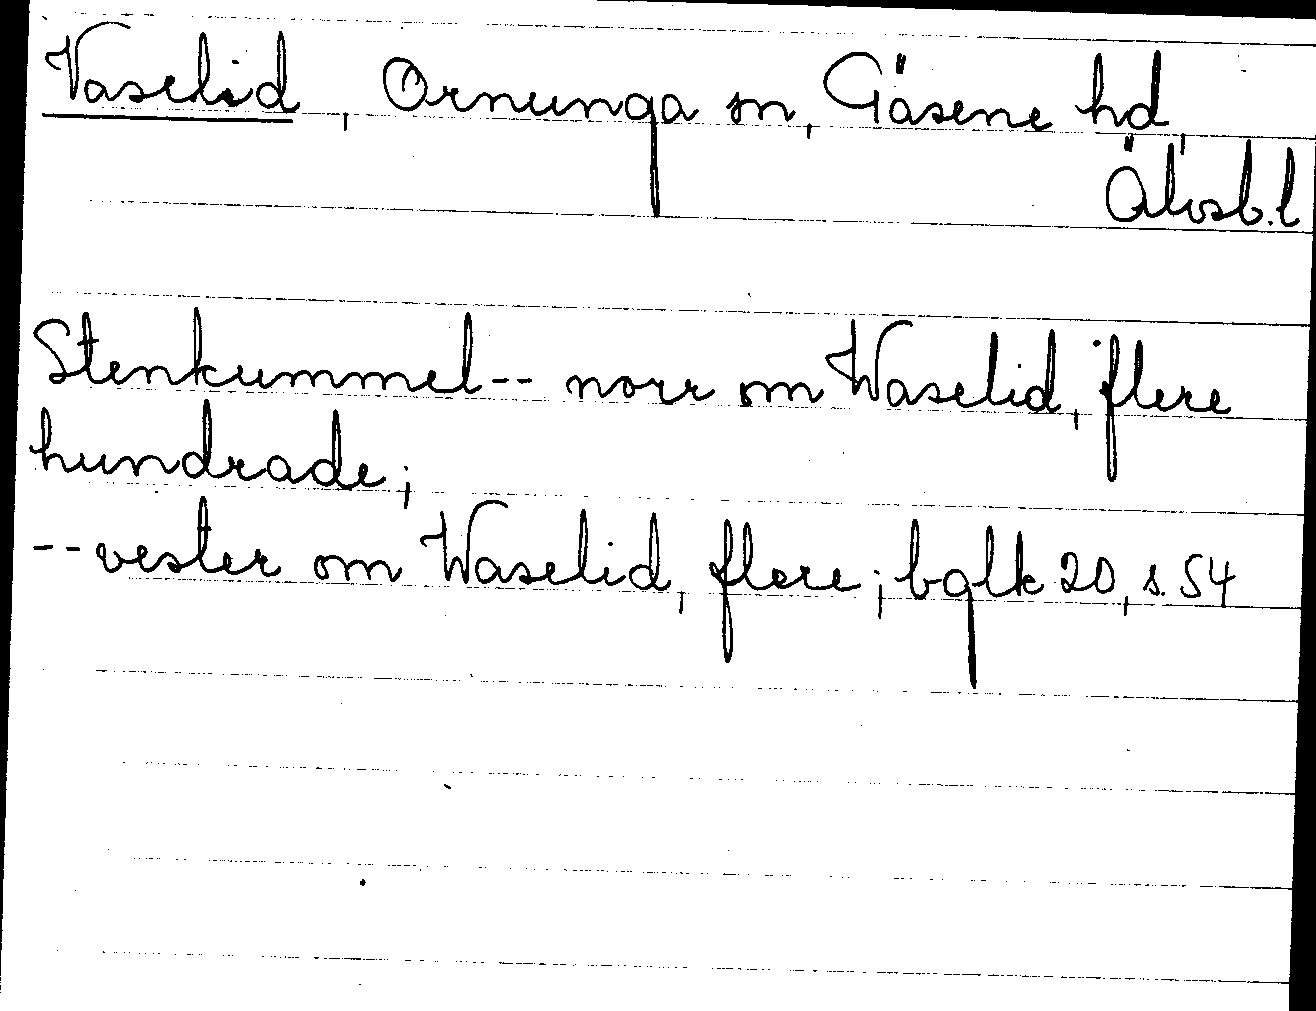 Vaselid, Ornunga sn, Gäsene hd,
Älvsb.l
Stenkummel-- norr om Waselid, flere
hundrade;
-- vester om Waselid, flere; bglk 20, s. 54